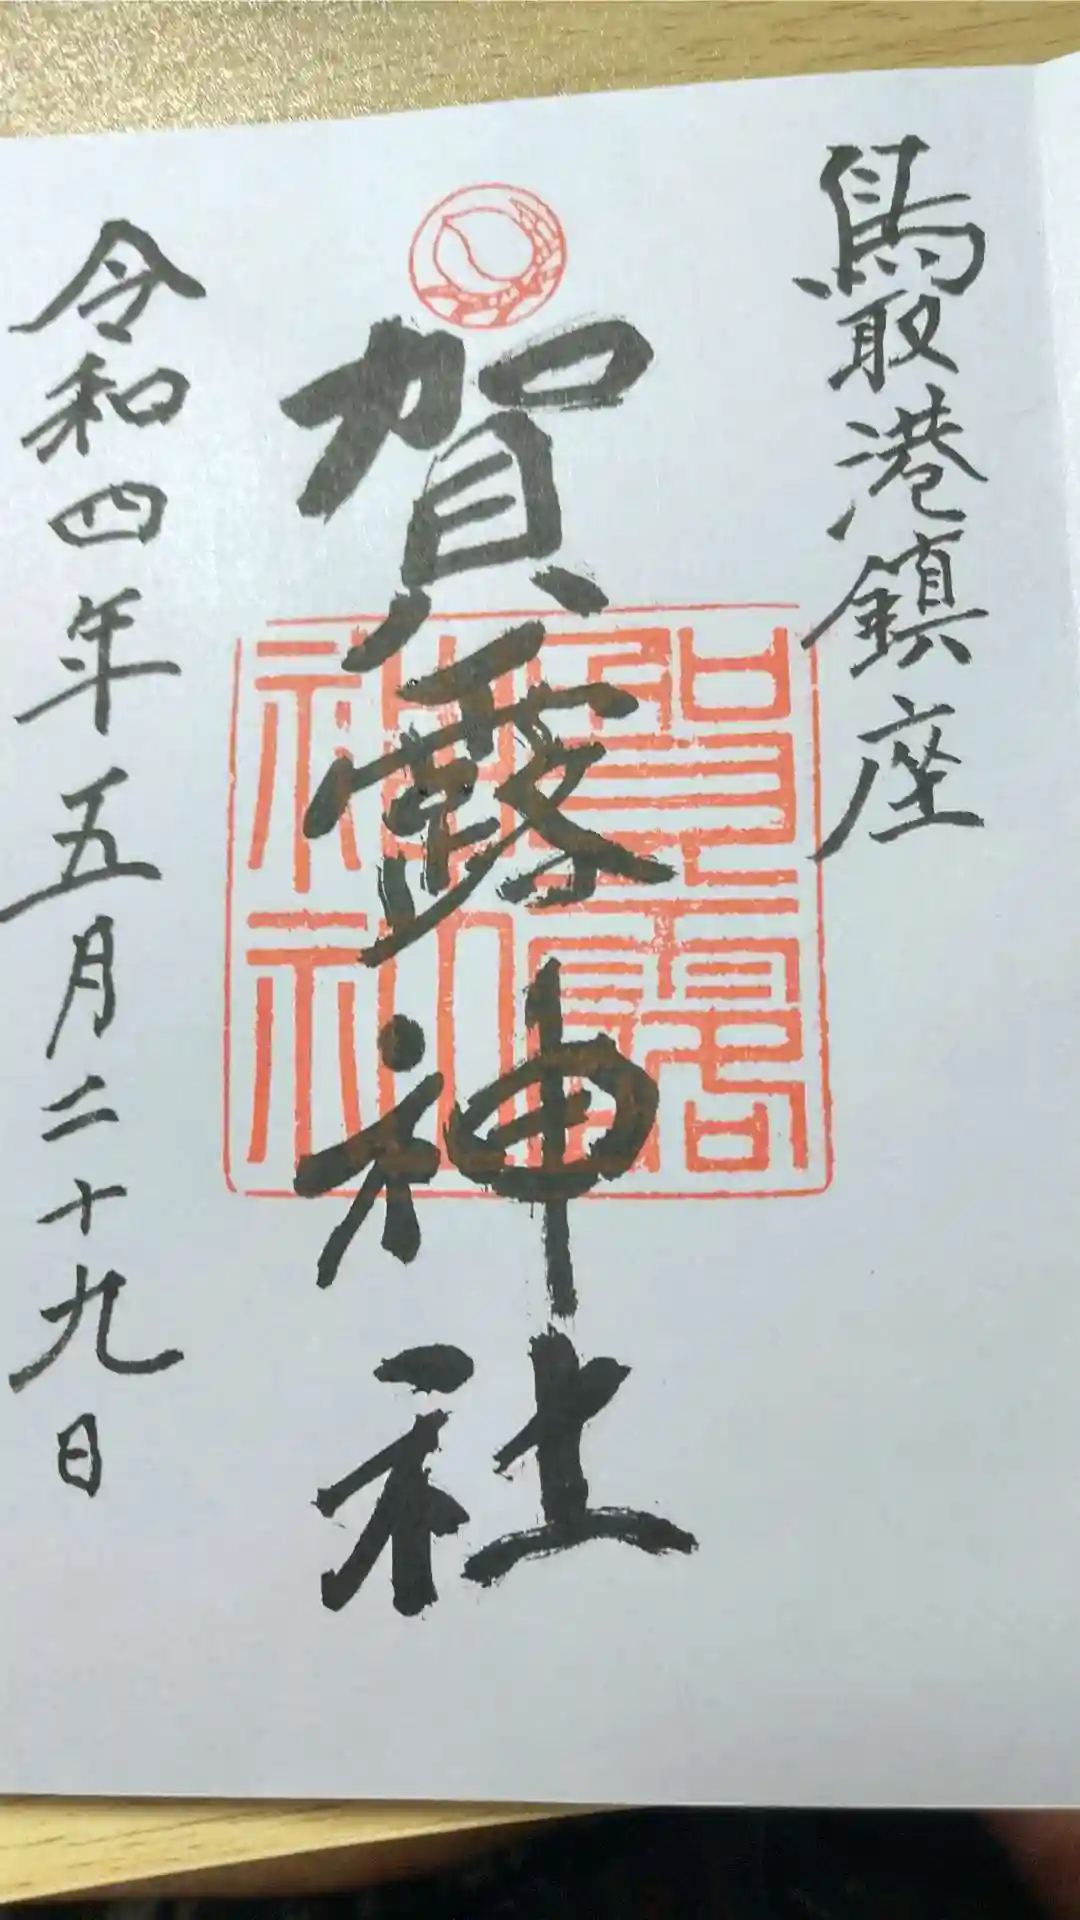 鳥取港鎮座
賀露神社
賀露神社
令和四年五月二十九日